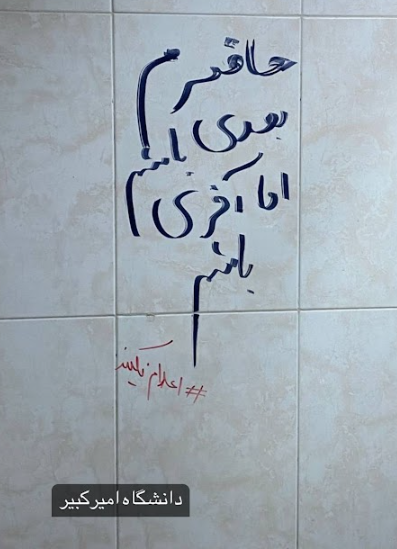 حاضرم
بعدی باشم
اما آخری
باشم
#اعدام_نکنید
دانشگاه امیرکبیر